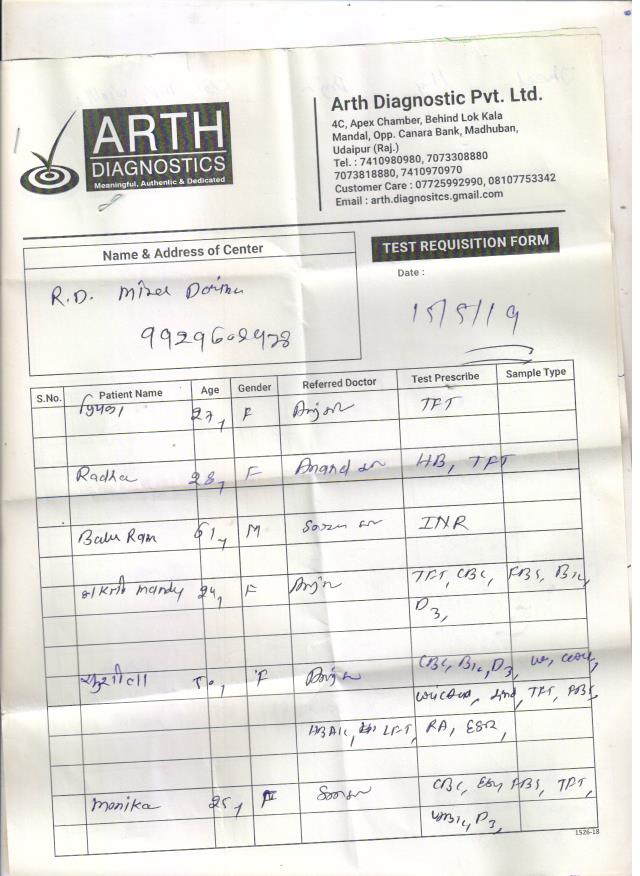 ARTH
DIAGNOSTICS
Meaningful, Authentic & Dedicated
Arth Diagnostic Pvt. Ltd.
4C, Apex Chamber, Behind Lok Kala
Mandal, Opp. Canara Bank, Madhuban,
Udaipur (Raj.)
Tel. : 7410980980, 7073308880
7073818880, 7410970970
Customer Care : 07725992990, 08107753342
Email : arth.diagnositcs.gmail.com
Name & Address of Center
TEST REQUISITION FORM
Date :
R.D.
15/5/19
S.No. Patient Name Age Gender Referred Doctor Test Prescribe Sample Type
27, F TFT
Radha 28, F Anand HB, TFT
Babu Ram 61, M INR
24, F TFT, CBC, FBS, B12,
D3,
F CBC, B12, D3,
TFT, FBS,
HBA1C, LFT, RA, ESR,
Monika 25, F CBC, ESR, FBS, TFT,
B12, D3,
1526-18